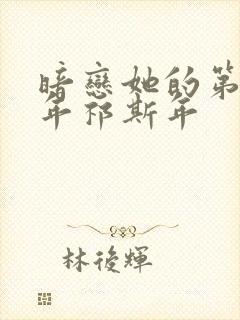 暗戀她的第
年祁斯年
林後輝